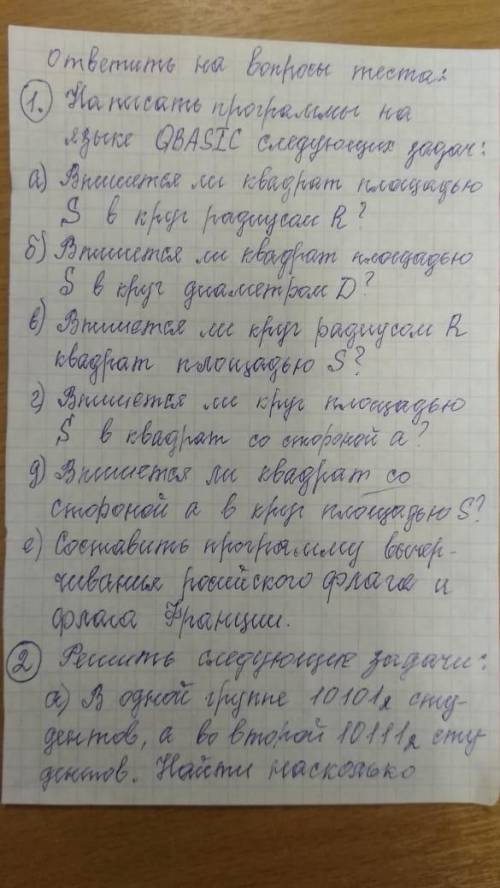 Ответить на вопросы теста:
1. Написать программы на
языке QBASIC следующих задач:
а) Впишется ли квадрат площадью
S в круг радиусом R?
б) Впишется ли квадрат площадью
S в круг диаметром D?
в) Впишется ли круг радиусом R
квадрат площадью S?
г) Впишется ли круг площадью
S в квадрат со стороной а?
д) Впишется ли квадрат со
стороной а в круг площадью S?
е) Составить программу вычер-
чивания росийского флага и
флага Франции.
2 Решить следующие задачи:
а) В одной группе 10101₂ сту-
дентов, а во второй 10111₂ сту
дентов. Найти насколько